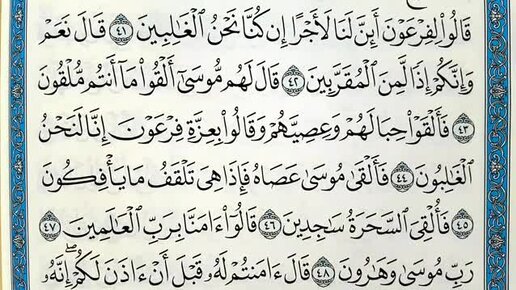 قَالُوا۟ لِفِرْعَوْنَ أَئِنَّ لَنَا لَأَجْرًا إِن كُنَّا نَحْنُ ٱلْغَـٰلِبِينَ ٤١ قَالَ نَعَمْ
وَإِنَّكُمْ إِذًا لَّمِنَ ٱلْمُقَرَّبِينَ ٤٢ قَالَ لَهُم مُّوسَىٰٓ أَلْقُوا۟ مَآ أَنتُم مُّلْقُونَ
٤٣ فَأَلْقَوْا۟ حِبَالَهُمْ وَعِصِيَّهُمْ وَقَالُوا۟ بِعِزَّةِ فِرْعَوْنَ إِنَّا لَنَحْنُ
ٱلْغَـٰلِبُونَ ٤٤ فَأَلْقَىٰ مُوسَىٰ عَصَاهُ فَإِذَا هِىَ تَلْقَفُ مَا يَأْفِكُونَ
٤٥ فَأُلْقِىَ ٱلسَّحَرَةُ سَـٰجِدِينَ ٤٦ قَالُوٓا۟ ءَامَنَّا بِرَبِّ ٱلْعَـٰلَمِينَ ٤٧
رَبِّ مُوسَىٰ وَهَـٰرُونَ ٤٨ قَالَ ءَامَنتُمْ لَهُۥ قَبْلَ أَنْ ءَاذَنَ لَكُمْ ۖ إِنَّهُۥ